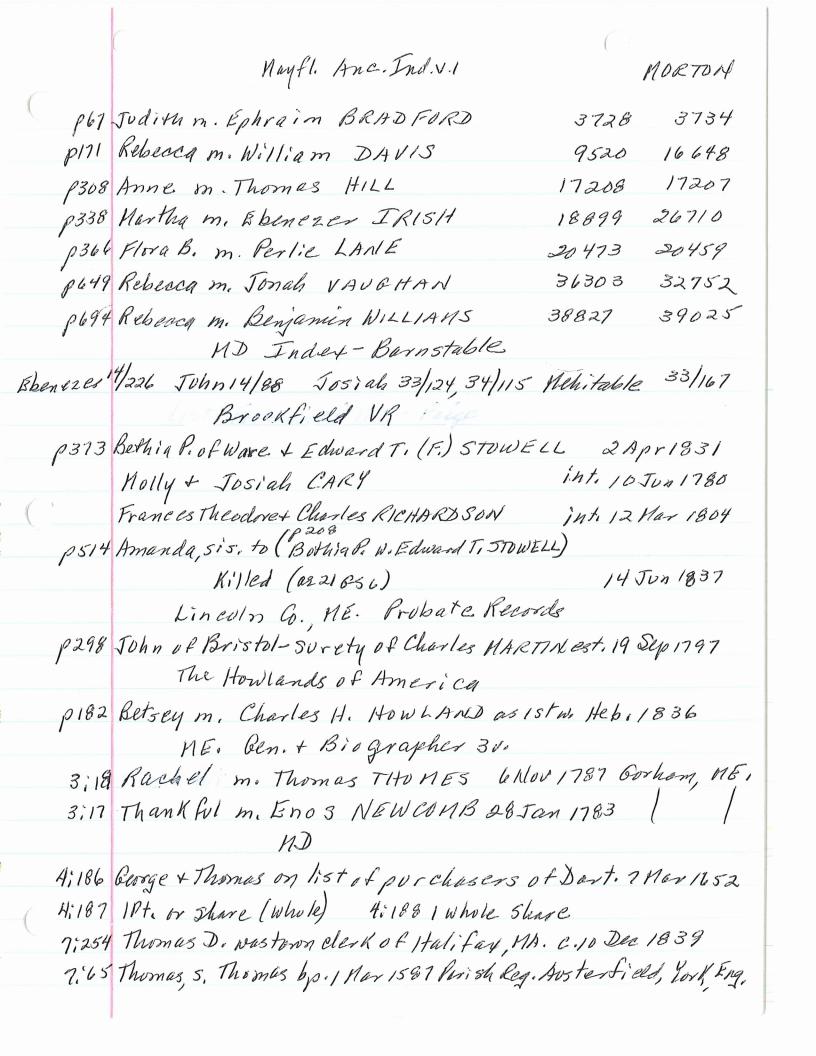 Mayfl. Anc. Ind. v.1 MORTON
p67 Judith m. Ephraim BRADFORD 3728 3734
p171 Rebecca m. William DAVIS 9520 16648
p308 Anne m. Thomas HILL 17208 17207
p338 Martha m. Ebenezer IRISH 18899 26710
p366 Flora B. m. Perlie LANE 20473 20459
p649 Rebecca m. Jonah VAUGHAN 36303 32752
p694 Rebecca m. Benjamin WILLIAMS 38827 39025
MD Index - Barnstable
Ebenezer 14/226 John 14/88 Josiah 33/124, 34/115 Mehitable 33/167
Brookfield VR
p373 Bethia P. of Ware + Edward T. (F.) STOWELL 2 Apr 1831
Molly + Josiah CARY int. 10 Jun 1780
Frances Theodore + Charles RICHARDSON int. 12 Mar 1804
p208
p514 Amanda, sis. to (Bethia P. w. Edward T. STOWELL)
Killed 14 Jun 1837
Lincoln Co., ME. Probate Records
p298 John of Bristol - surety of Charles MARTIN est. 19 Sep 1797
The Howlands of America
p182 Betsey m. Charles H. HOWLAND as 1st w. Feb. 1836
ME. Gen. + Biographer 3v.
3:18 Rachel m. Thomas THOMES 6 Nov 1787 Gorham, ME.
3:17 Thankful m. Enos NEWCOMB 28 Jan 1783 | |
MD
4:186 George + Thomas on list of purchasers of Dart. 7 Mar 1652
4:187 1 Pt. or share (whole) 4:188 1 whole share
7:254 Thomas D. was town clerk of Halifax, MA. c. 10 Dec 1839
7:65 Thomas, s. Thomas bp. 1 Mar 1587 Parish Reg. Austerfield, York, Eng.